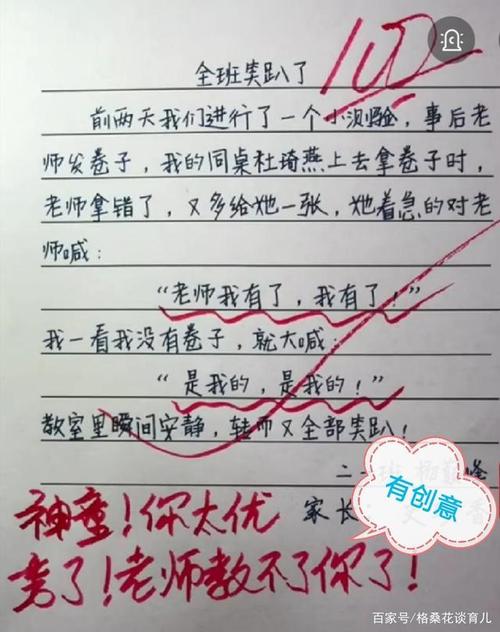 100
全班笑趴了
前两天我们进行了一个小测验，事后老
师发卷子，我的同桌杜琦燕上去拿卷子时，
老师拿错了，又多给她一张，她着急的对老
师喊：
“老师我有了，我有了！”
我一看我没有卷子，就大喊：
“是我的，是我的！”
教室里瞬间安静，转而又全部笑趴！
二一班
有创意
家长：
神童！你太优
秀了！老师教不了你了！
百家号/格桑花谈育儿